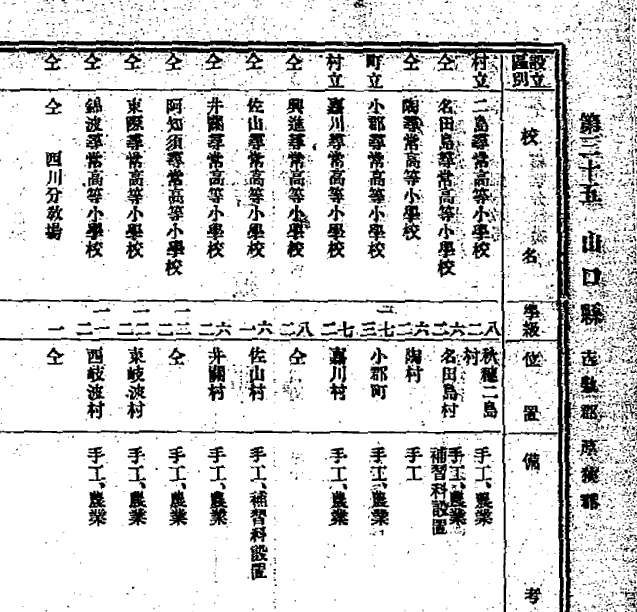 第三十五 山口縣 吉敷郡 厚狹郡
設立區別 校名 學級 位置 備考
村立 二島尋常高等小學校 八二 秋穗二島村 手工、農業
仝 名田島尋常高等小學校 六二 名田島村 手工、農業 補習科設置
仝 陶尋常高等小學校 六二 陶村 手工
町立 小郡尋常高等小學校 三 小郡町 手工、農業
村立 嘉川尋常高等小學校 七二 嘉川村 手工、農業
仝 興進尋常高等小學校 八二 仝
仝 佐山尋常高等小學校 六一 佐山村 手工、補習科設置
仝 井關尋常高等小學校 六二 井關村 手工、農業
仝 阿知須尋常高等小學校 仝 手工、農業
仝 東際尋常高等小學校 東岐波村 手工、農業
仝 錦波尋常高等小學校 西岐波村 手工、農業
仝 仝 西川分敎場 一 仝